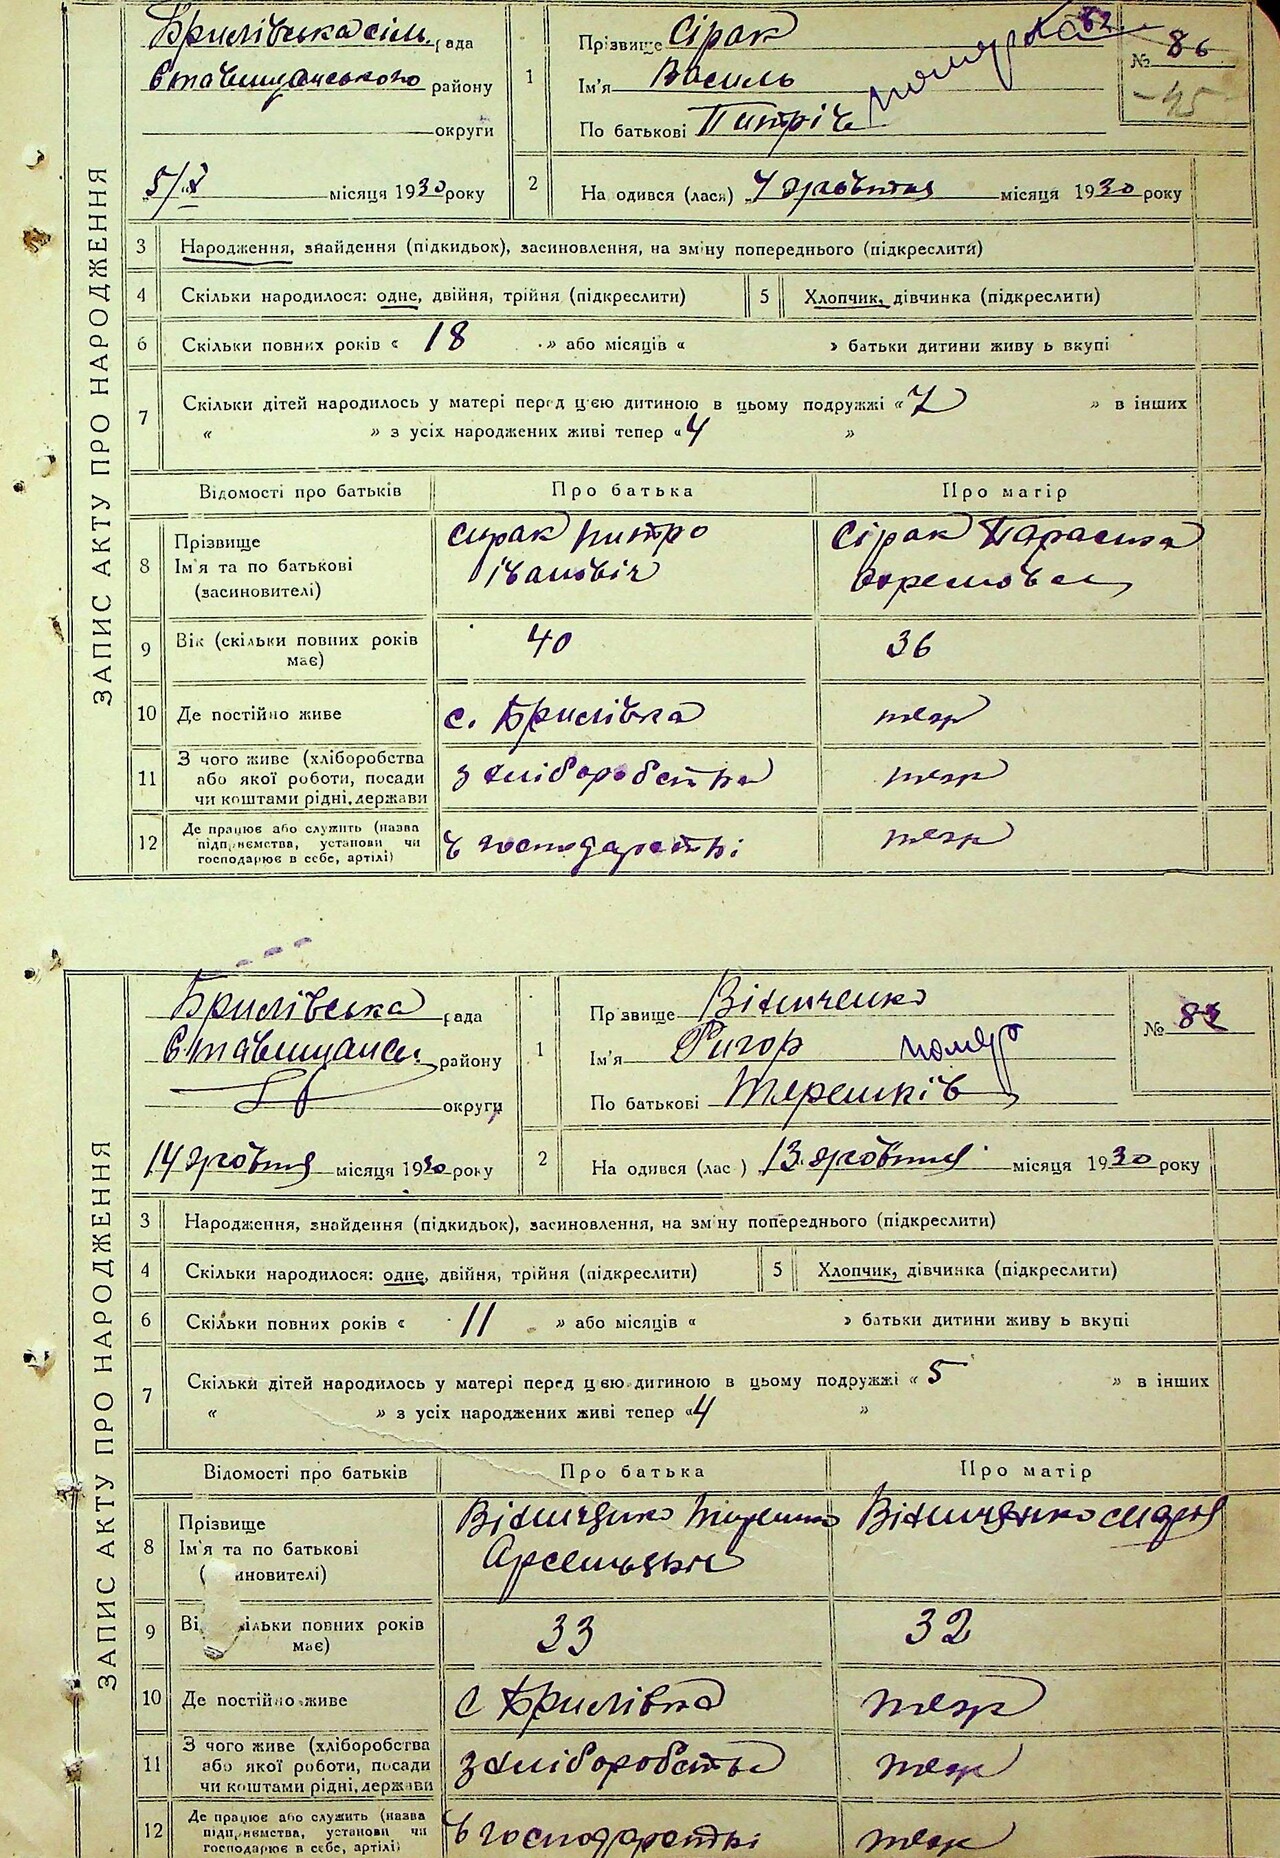 ЗАПИС АКТУ ПРО НАРОДЖЕННЯ
Брилівська сіль. рада
Ставищанського району
округи
5/X місяця 1930 року
1
Прізвище Сірак
Ім'я Василь
По батькові Питрів
62
№ 86
45
2
На одився (лася) 4 жовтня місяця 1930 року
3 Народження, знайдення (підкидьок), засиновлення, на зміну попереднього (підкреслити)
4 Скільки народилося: одне, двійня, трійня (підкреслити) 5 Хлопчик, дівчинка (підкреслити)
6 Скільки повних років « 18 » або місяців « » батьки дитини живу ь вкупі
7 Скільки дітей народилось у матері перед цією дитиною в цьому подружжі « 7 » в інших
« » з усіх народжених живі тепер « 4 »
Відомості про батьків Про батька Про матір
8 Прізвище Ім'я та по батькові (засиновителі) Сирак Питро Івановіч Сірак Параска
9 Вік (скільки повних років має) 40 36
10 Де постійно живе с. Брилівка теж
11 З чого живе (хліборобства або якої роботи, посади чи коштами рідні, держави з хліборобства теж
12 Де працює або служить (назва підприємства, установи чи господарює в себе, артілі) в господарстві теж
ЗАПИС АКТУ ПРО НАРОДЖЕННЯ
Брилівська рада
Ставищанськ. району
округи
14 жовтня місяця 1930 року
1
Прізвище Вініченко
Ім'я Григор помер
По батькові Терешків
№ 87
2
На одився (лас ) 13 жовтня місяця 1930 року
3 Народження, знайдення (підкидьок), засиновлення, на зміну попереднього (підкреслити)
4 Скільки народилося: одне, двійня, трійня (підкреслити) 5 Хлопчик, дівчинка (підкреслити)
6 Скільки повних років « 11 » або місяців « » батьки дитини живу ь вкупі
7 Скільки дітей народилось у матері перед цією дитиною в цьому подружжі « 5 » в інших
« » з усіх народжених живі тепер « 4 »
Відомості про батьків Про батька Про матір
8 Прізвище Ім'я та по батькові ( иновителі) Вініченко Терешко Вініченко
9 Ві ільки повних років має) 33 32
10 Де постійно живе с Брилівка теж
11 З чого живе (хліборобства або якої роботи, посади чи коштами рідні, держави з хліборобства теж
12 Де працює або служить (назва підприємства, установи чи господарює в себе, артілі) в господарстві теж